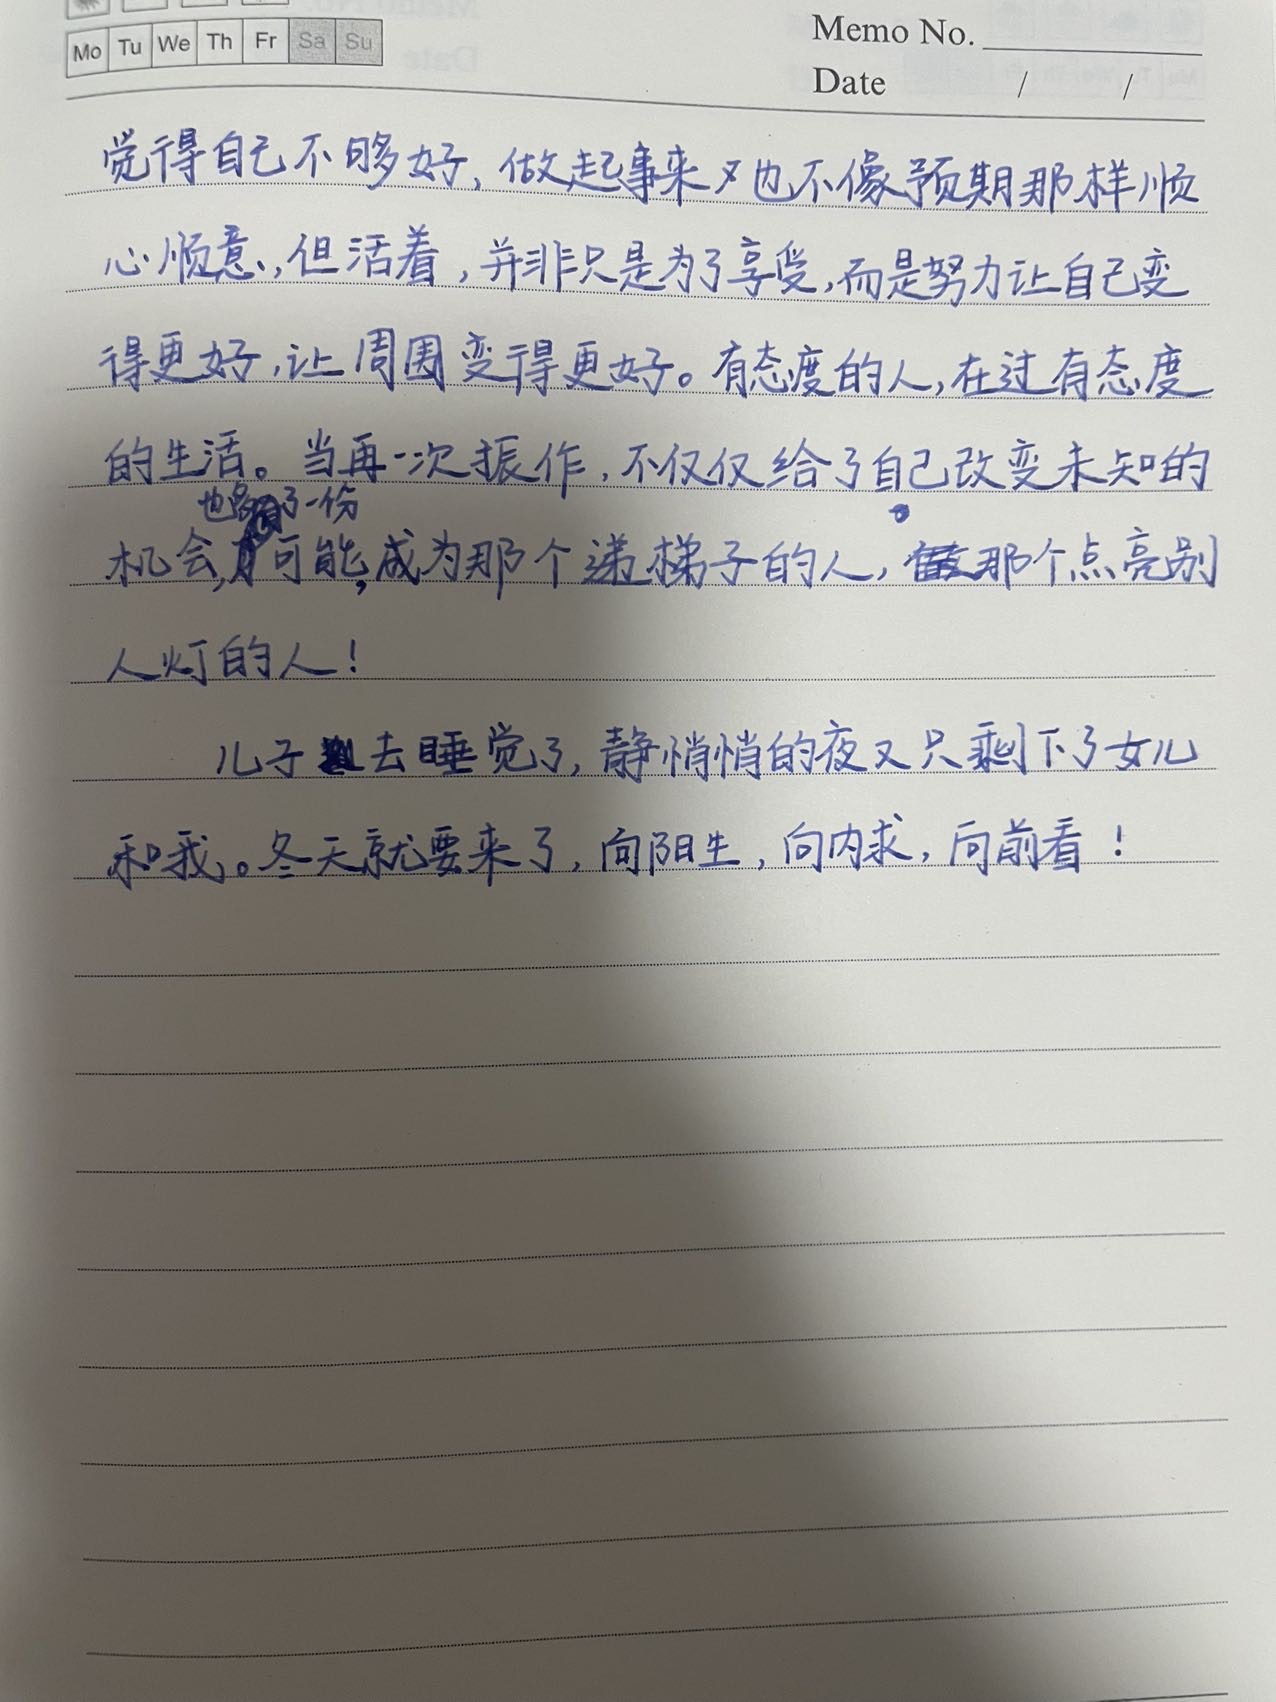 Mo Tu We Th Fr Sa Su
Memo No.
Date / /
觉得自己不够好，做起事来又也不像预期那样顺
心顺意，但活着，并非只是为了享受，而是努力让自己变
得更好，让周围变得更好。有态度的人，在过有态度
的生活。当再一次振作，不仅仅给了自己改变未知的
也多了一份
机会，可能，成为那个递梯子的人，那个点亮别
人灯的人！
儿子去睡觉了，静悄悄的夜又只剩下了女儿
和我。冬天就要来了，向阳生，向内求，向前看！